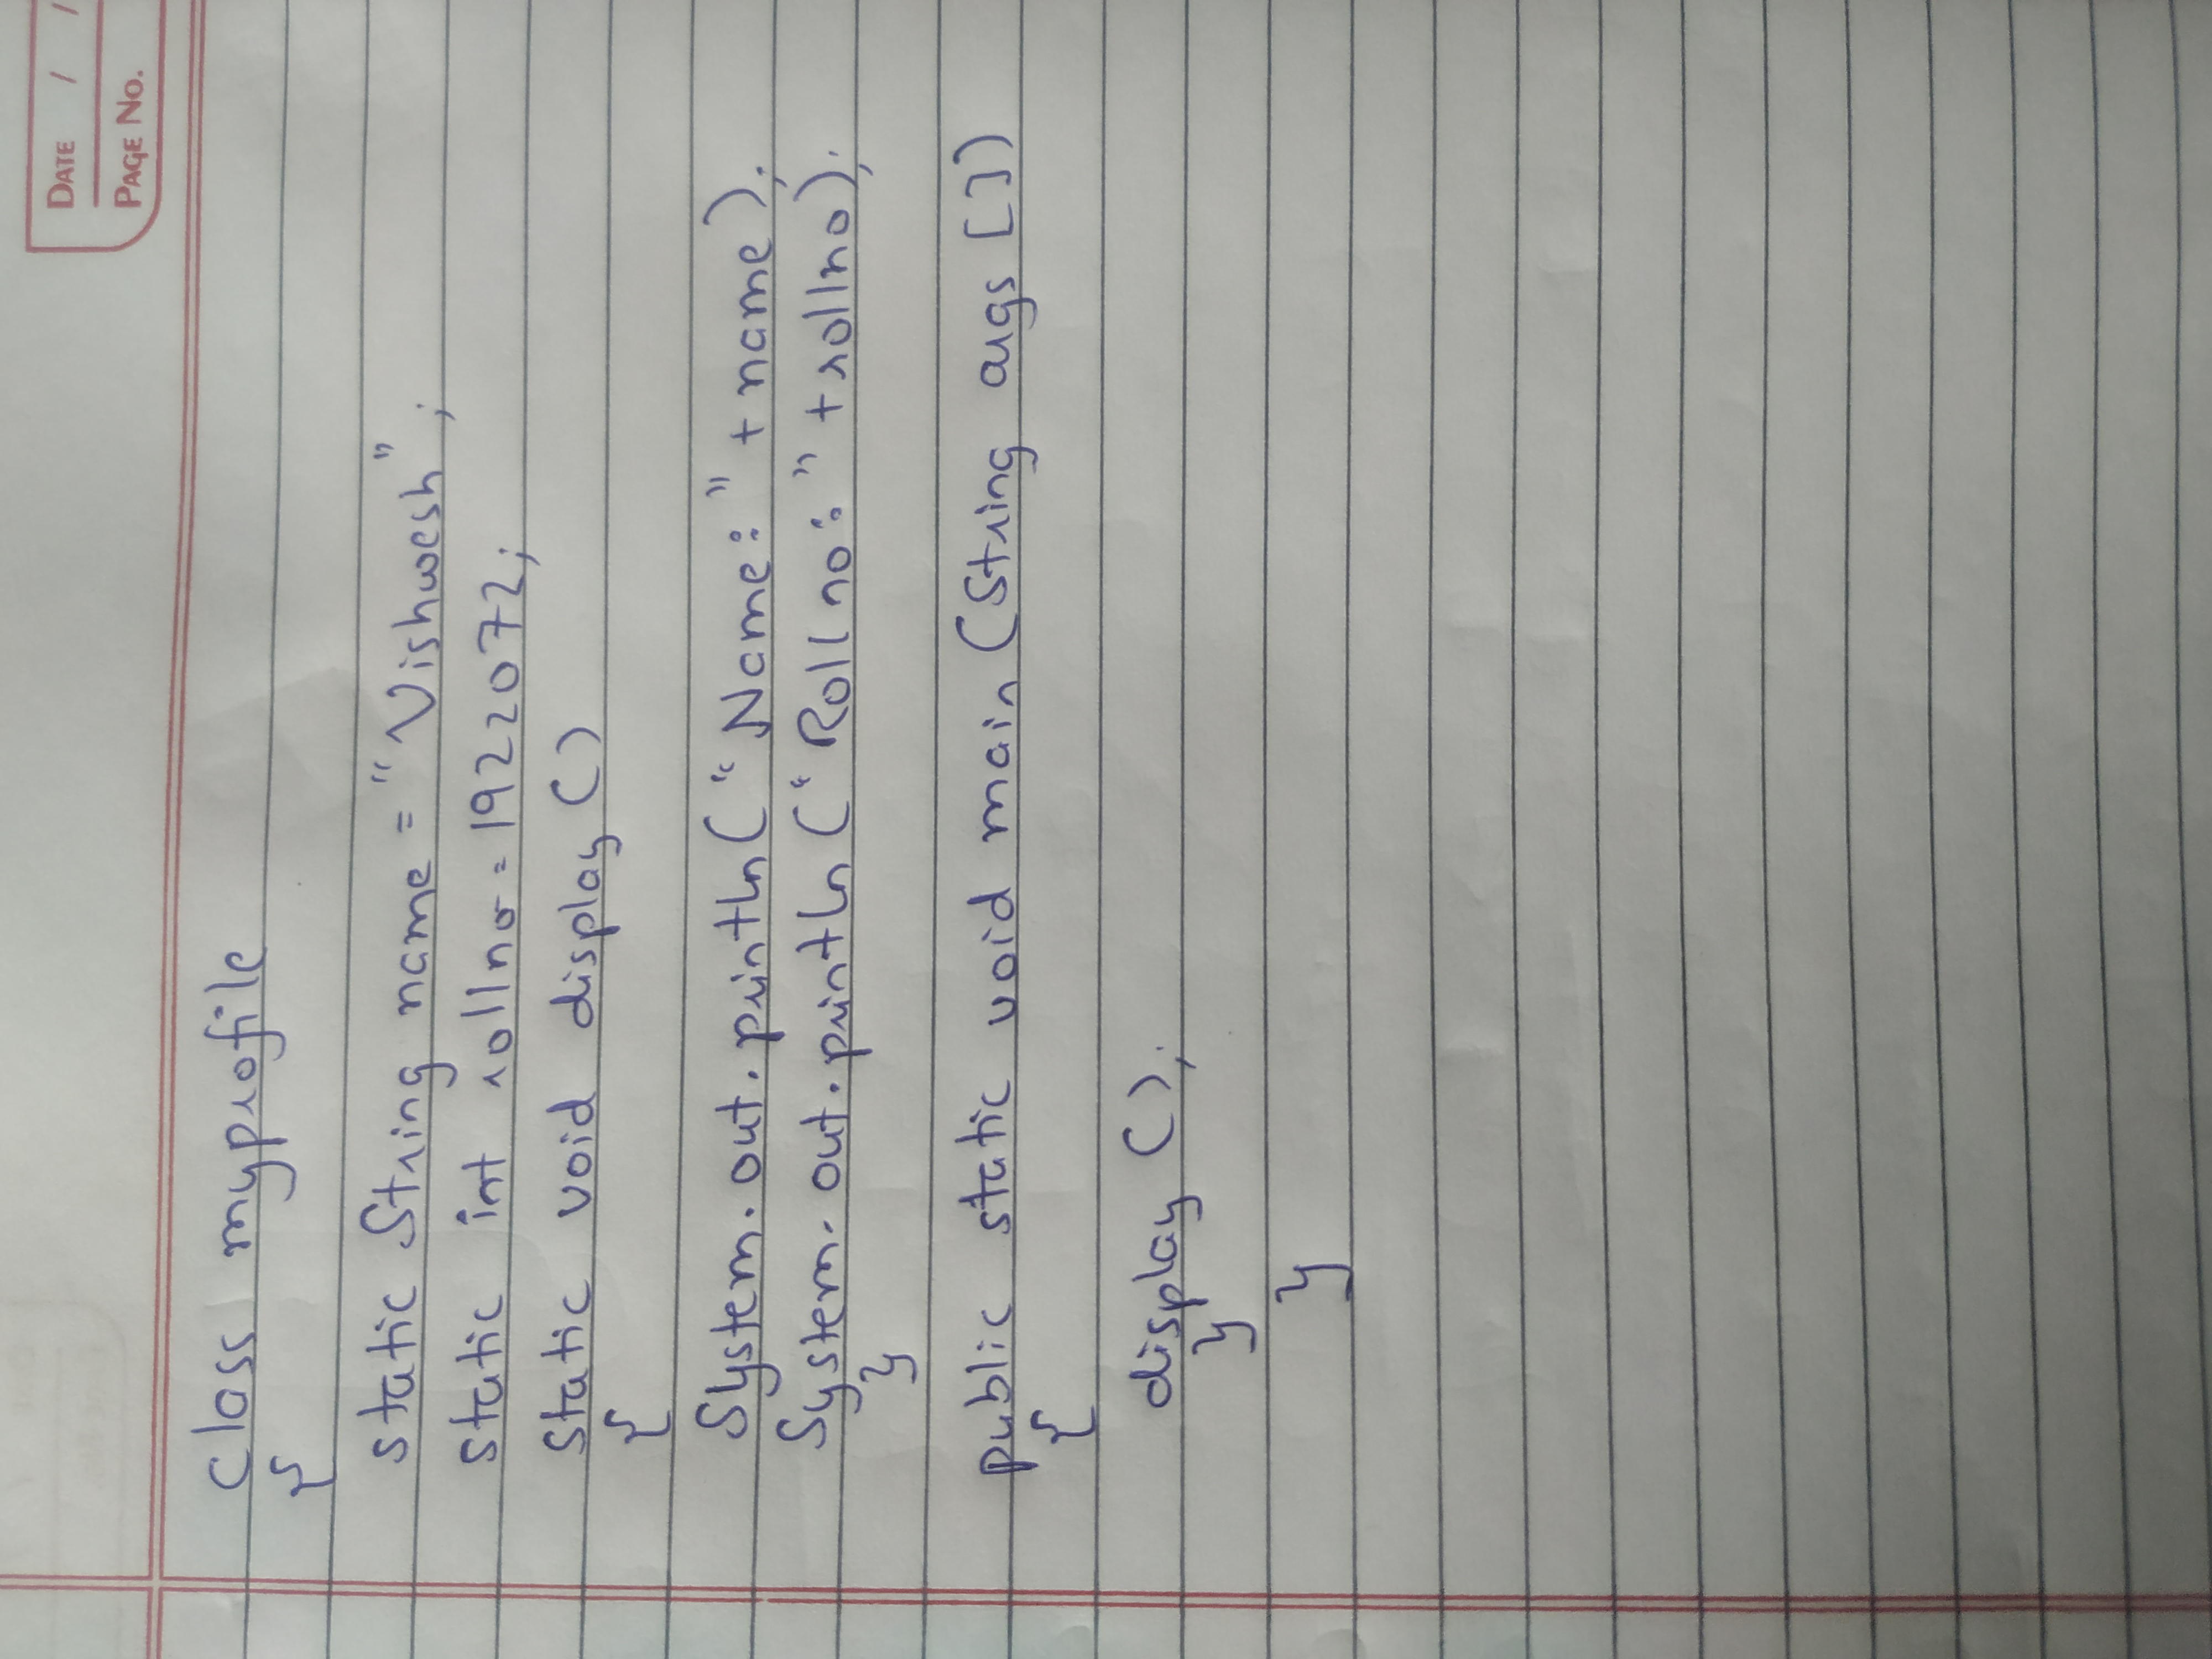 DATE / /
PAGE NO.
class myprofile
{
static String name = "Vishwesh";
static int rollno = 1922072;
static void display ()
{
System.out.println("Name:" + name);
System.out.println("Roll no:" + rollno);
}
public static void main (String args [])
{
display ();
}
}